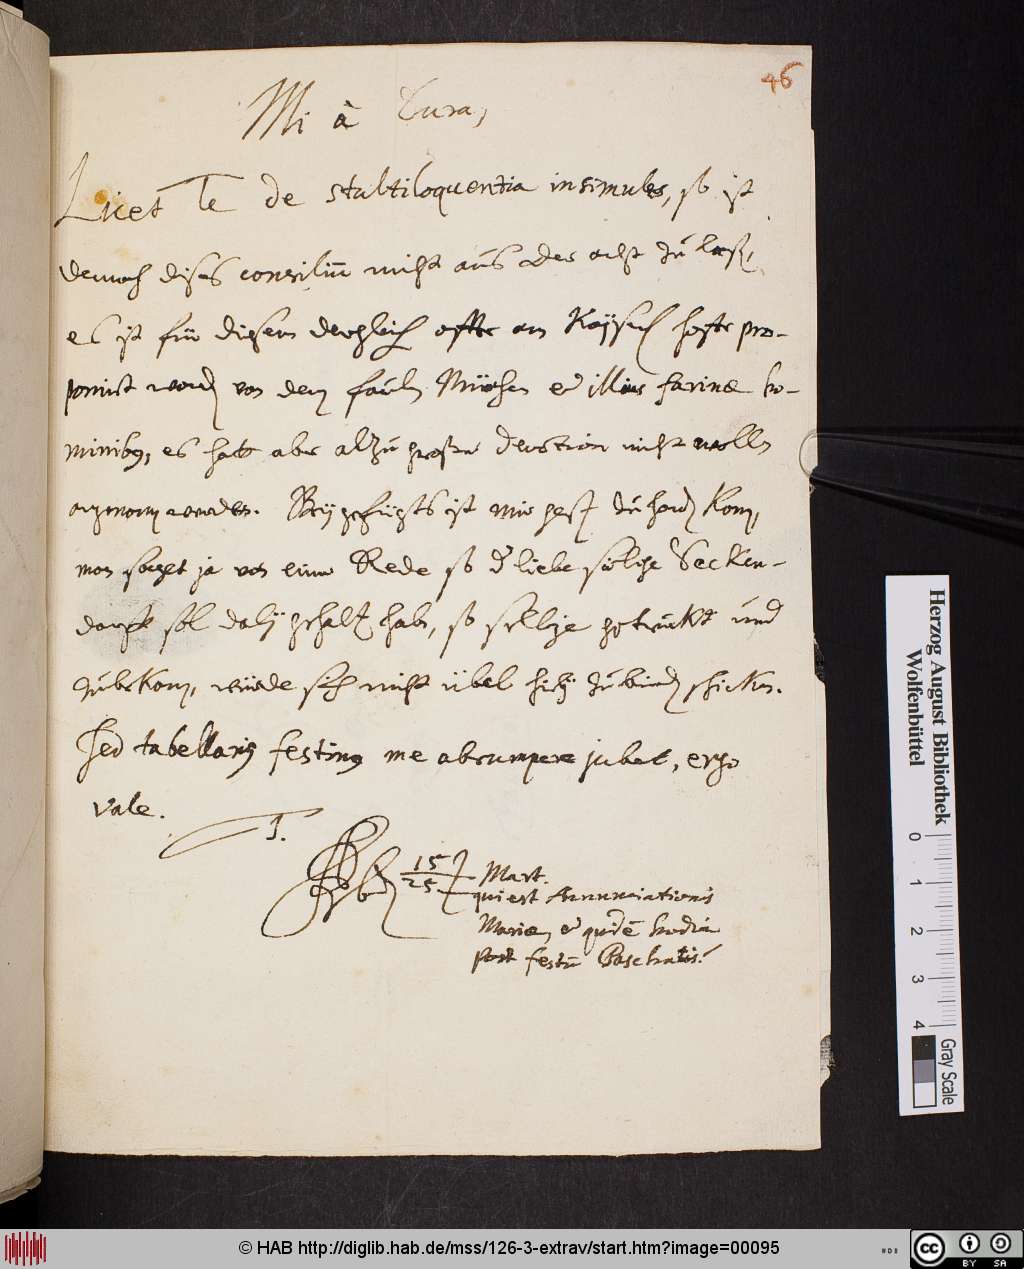 46
Mi à Cura,
Licet Te de stultiloquentia insimules, so ist
dennoch dises consiliũ nicht aus der acht zu laßẽ,
es ist für diesem dergleich offte am Kaÿserl hofe pro-
ponirt word von dem faulen München et illius farinæ ho-
minibus, es hatt aber alzu großer devotion nicht wollen
angenom̃ werden. Beÿgefügts ist mir gest zu handẽ kom̃,
man saget ja von einer Rede so d' liebe seelige Secken-
dorff sol dabÿ gehaltẽ habẽ, so selbige getruckt und
zubekom̃, würde sich nicht übel hiebÿ zubindẽ schicken.
Sed tabellarij festinus me abrumpere jubet, ergo
vale.
T.
15
25 Mart.
qui est Annunciationis
Mariæ, et quidẽ
post festũ Paschatis.
Herzog August Bibliothek
Wolfenbüttel
0 1 2 3 4
Gray Scale
© HAB http://diglib.hab.de/mss/126-3-extrav/start.htm?image=00095
cc BY SA